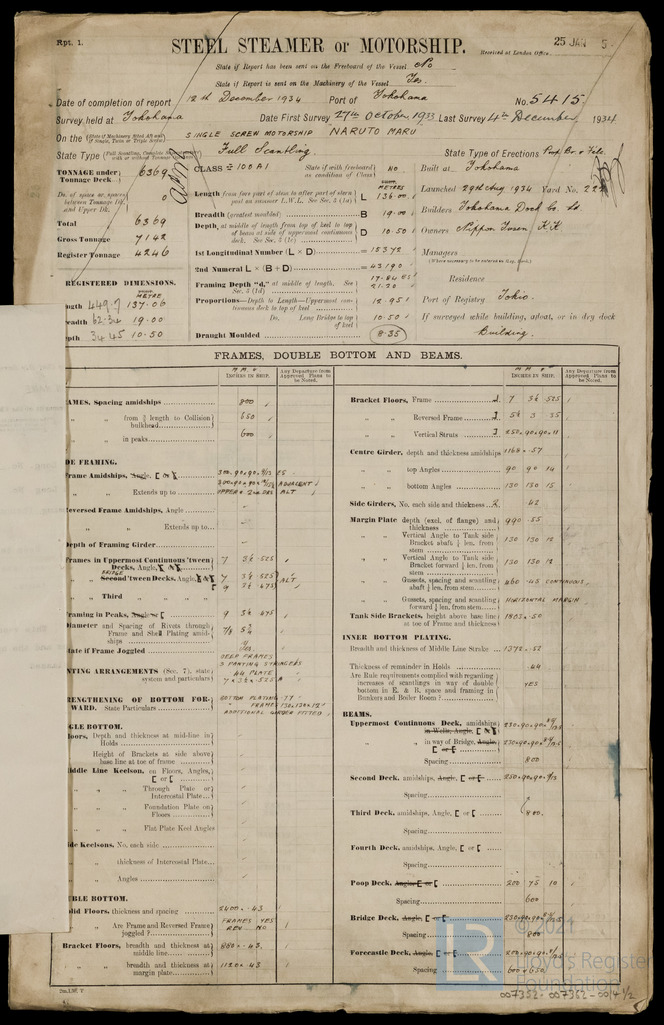 Rpt. 1.
25 JAN 5
STEEL STEAMER or MOTORSHIP.
Received at London Office
State if Report has been sent on the Freeboard of the Vessel No
State if Report is sent on the Machinery of the Vessel Yes.
Date of completion of report 12th December 1934 Port of Yokohama No. 5415.
Survey held at Yokohama Date First Survey 27th October 1933 Last Survey 4th December, 1934
On the (State if Machinery fitted Aft and if Single, Twin or Triple Screw) SINGLE SCREW MOTORSHIP NARUTO MARU
State Type Full Scantling State Type of Erections
TONNAGE under Tonnage Deck 6369
Do. of space or spaces between Tonnage Dk. and Upper Dk. 0
Total 6369
Gross Tonnage 7142
Register Tonnage 4246
REGISTERED DIMENSIONS.
METRE
ngth 449.7 137.06
eadth 62.34 19.00
pth 34.45 10.50
CLASS 100A1 State if with freeboard as condition of Class NO
METRES
Length from fore part of stem to after part of stern post on summer L.W.L. See Sec. 3 (1a) L 136.00
Breadth (greatest moulded) B 19.00
Depth, at middle of length from top of keel to top of beam at side of uppermost continuous deck. See Sec. 3 (1c) D 10.50
1st Longitudinal Number (L × D) = 15372
2nd Numeral L × (B + D) = 43190
Framing Depth "d," at middle of length. See Sec. 3 (1d)
21.20
Proportions—Depth to Length—Uppermost continuous deck to top of keel 12.951
Do. Long Bridge to top of keel 10.50
Draught Moulded 8.35
Built at Yokohama
Launched 29th Aug 1934 Yard No.
Builders Yokohama Dock Co. Ld.
Owners Nippon Yusen K.K.
Managers
Residence
Port of Registry Tokio.
If surveyed while building, afloat, or in dry dock
Building.
FRAMES, DOUBLE BOTTOM AND BEAMS.
INCHES IN SHIP.
Any Departure from Approved Plans to be Noted.
INCHES IN SHIP.
Any Departure from Approved Plans to be Noted.
AMES, Spacing amidships 800
" " from ⅗ length to Collision bulkhead 650
" " in peaks 600
DE FRAMING.
rame Amidships, Angle, [ or
ADJACENT
" " Extends up to UPPER & 2ND DKS ALT
eversed Frame Amidships, Angle
" " Extends up to
Depth of Framing Girder
rames in Uppermost Continuous 'tween Decks, Angle, 7 3½ .525
BRIDGE
" " Second 'tween Decks, Angle, 7 3½ .525 ALT
9 3½ .475
" " Third " "
raming in Peaks, Angle or [ 9 3½ .475
iameter and Spacing of Rivets through Frame and Shell Plating amidships 7/8
tate if Frame Joggled
NTING ARRANGEMENTS (Sec. 7), state system and particulars
DEEP FRAMES
3 PANTING STRINGERS
44 PLATE
7 x 3½ x .525 A
RENGTHENING OF BOTTOM FORWARD. State Particulars
BOTTOM PLATING .77
" FRAME 130x130x12
ADDITIONAL GIRDER FITTED
GLE BOTTOM.
loors, Depth and thickness at mid-line in Holds
Height of Brackets at side above base line at toe of frame
iddle Line Keelson, on Floors, Angles, [ or [
" " Through Plate or Intercostal Plate
" " Foundation Plate on Floors
" " Flat Plate Keel Angles
ide Keelsons, No. each side
" " thickness of Intercostal Plate
" " Angles
UBLE BOTTOM.
olid Floors, thickness and spacing 2400 . .43
" " Are Frame and Reversed Frame joggled? FRAMES YES
REV. NO
Bracket Floors, breadth and thickness at middle line 880 x .43
" " breadth and thickness at margin plate 1120 x .43
Bracket Floors, Frame 7 3½ .525
" " Reversed Frame 5½ 3 .35
" " Vertical Struts 250.90.90.11
Centre Girder, depth and thickness amidships 1168 x .57
" " top Angles 90 90 14
" " bottom Angles 130 130 15
Side Girders, No. each side and thickness 2 .42
Margin Plate depth (excl. of flange) and thickness 990 .55
" " Vertical Angle to Tank side Bracket abaft ¼ len. from stem 130 130 12
" " Vertical Angle to Tank side Bracket forward ¼ len. from stem 130 130 12
" " Gussets, spacing and scantling abaft ¼ len. from stem 460 .43 CONTINUOUS
" " Gussets, spacing and scantling forward ¼ len. from stem HORIZONTAL MARGIN
Tank Side Brackets, height above base line at toe of Frame and thickness 1803 x .50
INNER BOTTOM PLATING.
Breadth and thickness of Middle Line Strake 1372 x .52
Thickness of remainder in Holds .44
Are Rule requirements complied with regarding increases of scantlings in way of double bottom in E. & B. space and framing in Bunkers and Boiler Room? YES
BEAMS.
Uppermost Continuous Deck, amidships in Wells, Angle, [
" " in way of Bridge, Angle, [ or [
Spacing 800
Second Deck, amidships, Angle, [ or [
Spacing
Third Deck, amidships, Angle, [ or [ 800.
Spacing
Fourth Deck, amidships, Angle, [ or [
Spacing
Poop Deck, Angle, [ or [ 200 75 10
Spacing 600
Bridge Deck, Angle, [ or [
Spacing 800
Forecastle Deck, Angle, [ or [
Spacing 600 & 650
© 2021
LR
Lloyd's Register
Foundation
007352-007362-0014 1/2